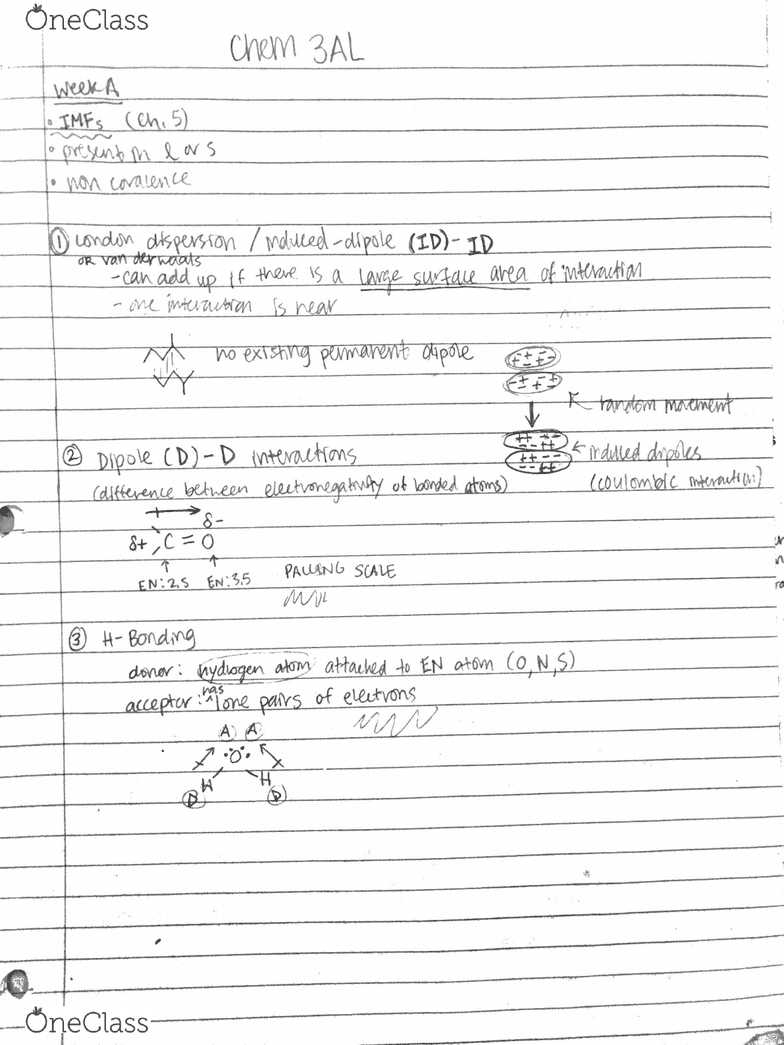 OneClass
Chem 3AL
Week A
• IMFs (Ch. 5)
• present in l or s
• non covalence
① London dispersion / induced-dipole (ID)-ID
OR van der waals
-can add up if there is a large surface area of interaction
- one interaction is
no existing permanent dipole
random movement
induced dipoles
(coulombic interaction)
② Dipole (D)-D interactions
(difference between electronegativity of bonded atoms)
δ-
δ+ C = O
EN:2.5 EN:3.5 PAULING SCALE
③ H-Bonding
donor: hydrogen atom attached to EN atom (O,N,S)
acceptor: has lone pairs of electrons
A A
O
H H
D D
OneClass